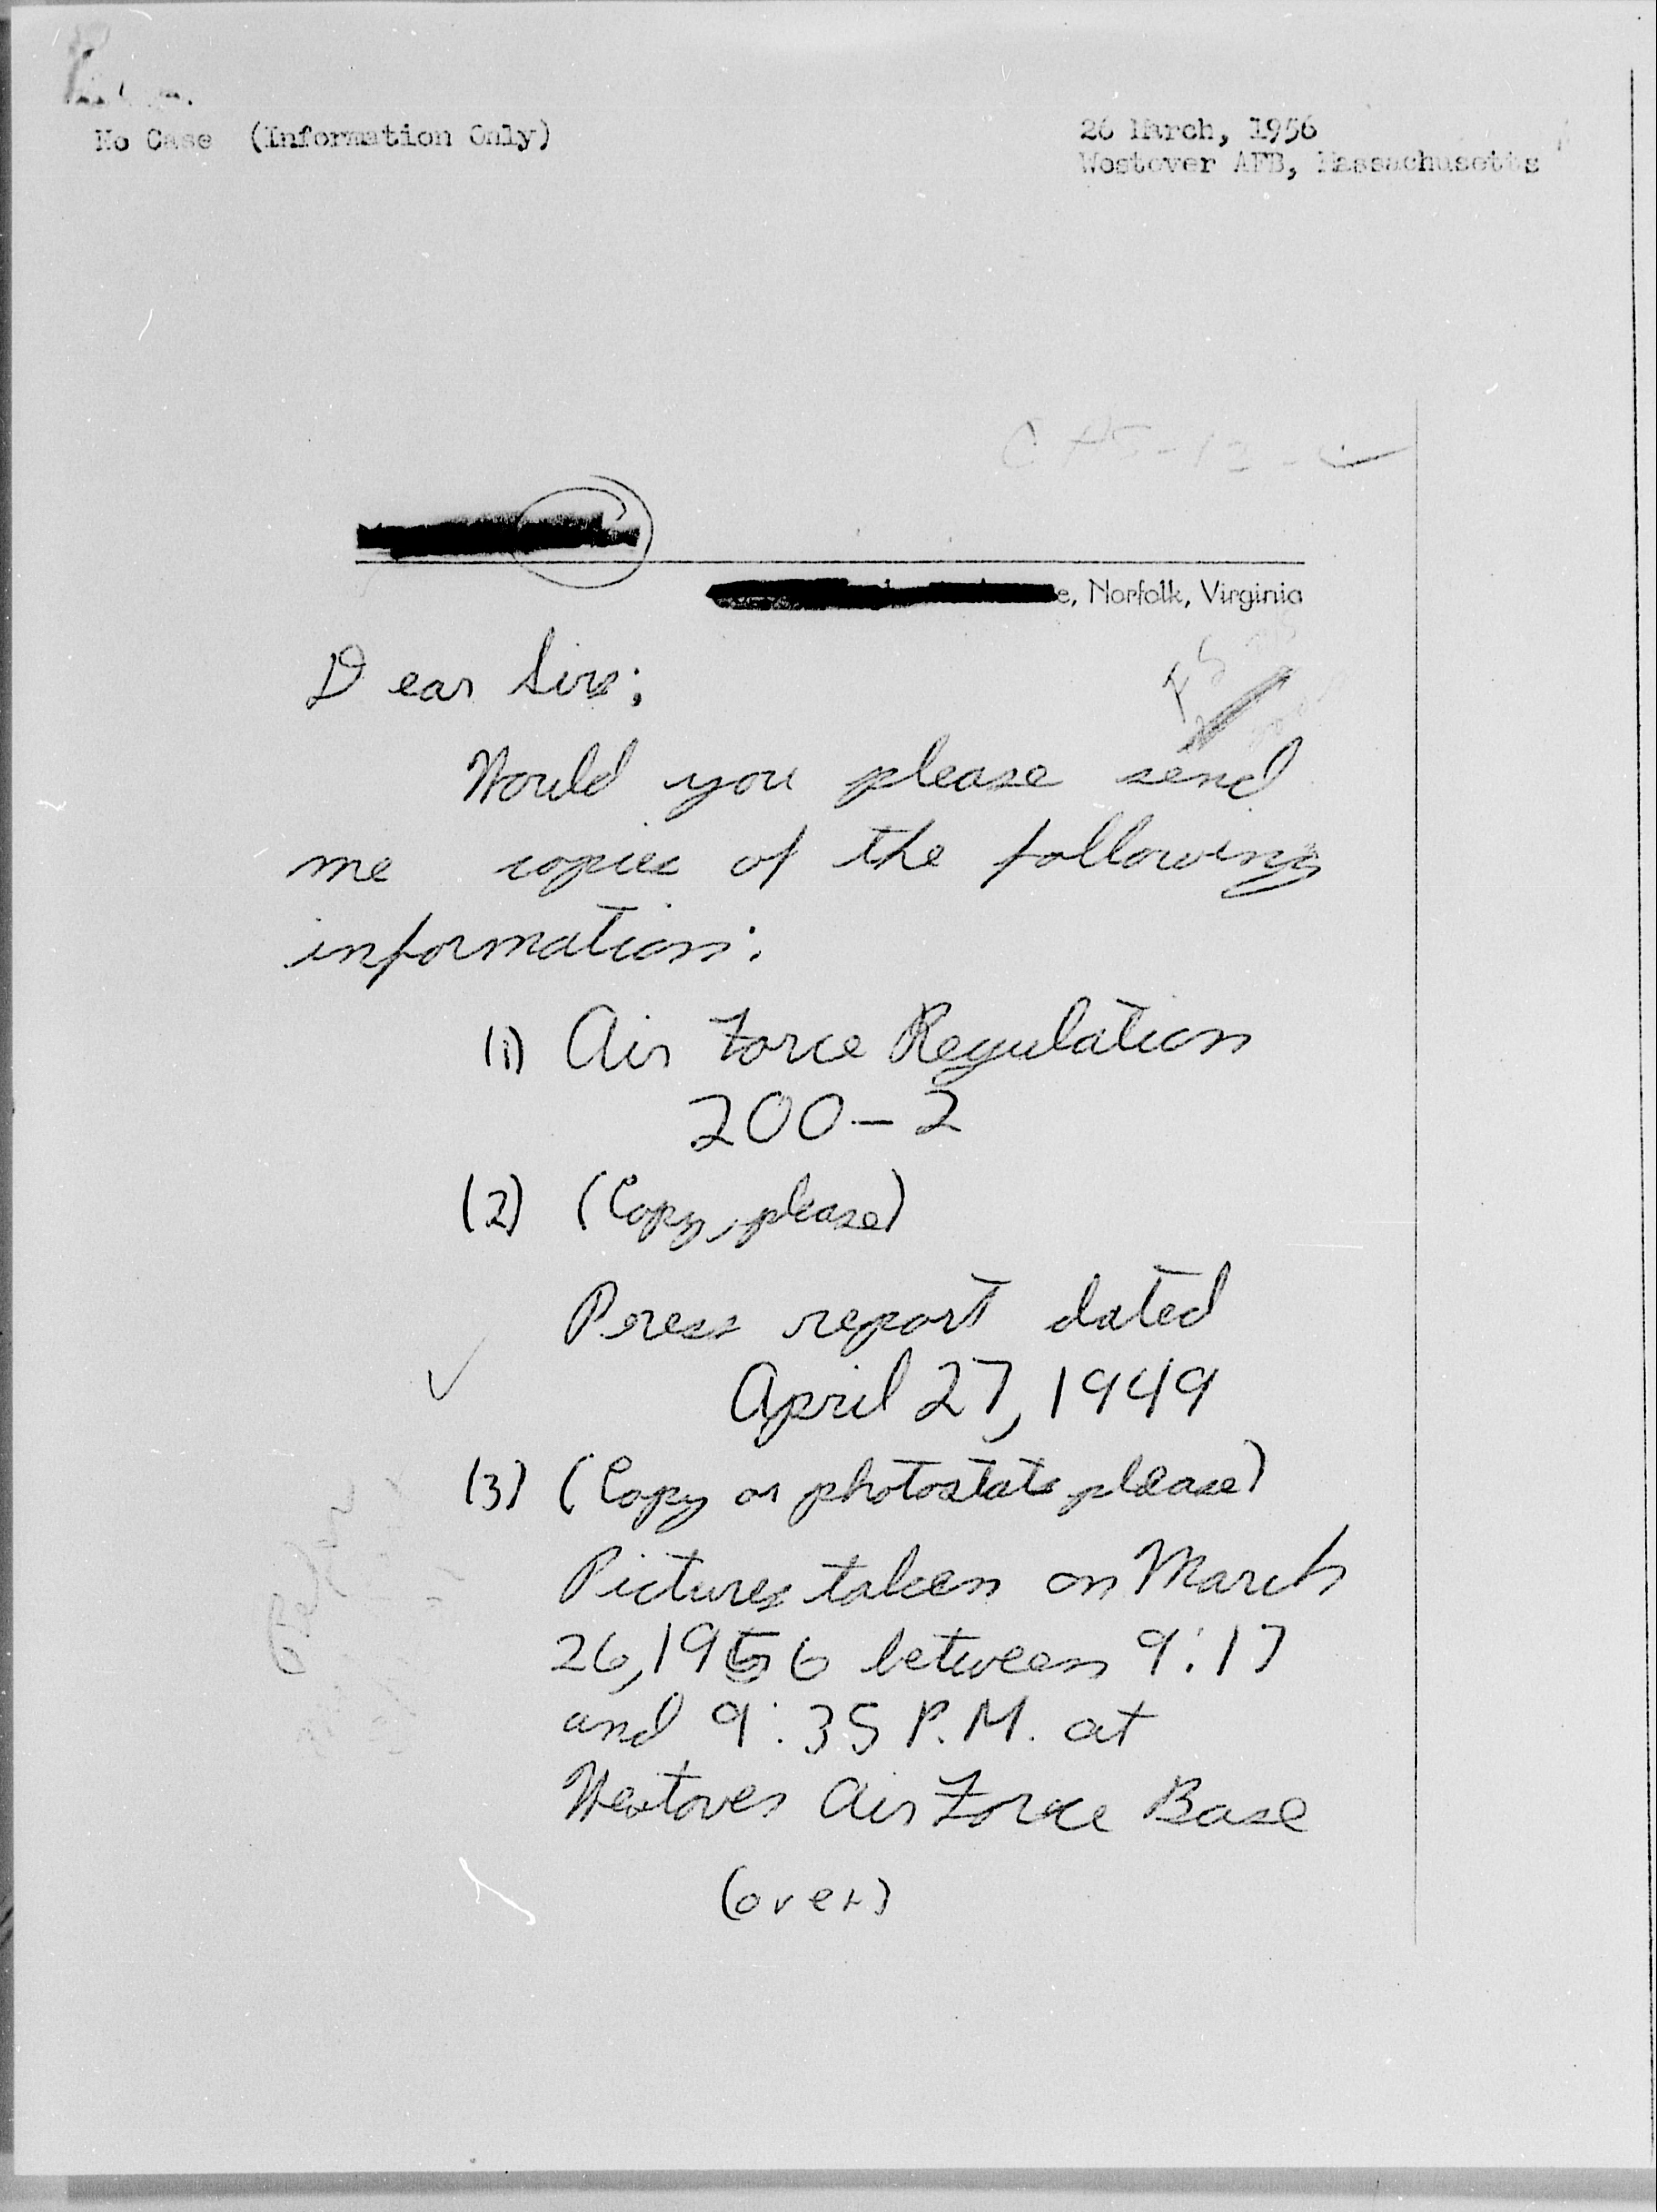 No Case (Information Only)
26 March, 1956
Westover AFB, Massachusetts
e, Norfolk, Virginia
Dear Sirs;
Would you please send
me copies of the following
information:
(1) Air Force Regulation
200-2
(2) (Copy, please)
Press report dated
April 27, 1949
(3) (Copy or photostats please)
Pictures taken on March
26, 1956 between 9:17
and 9:35 P.M. at
Westover Air Force Base
(over)